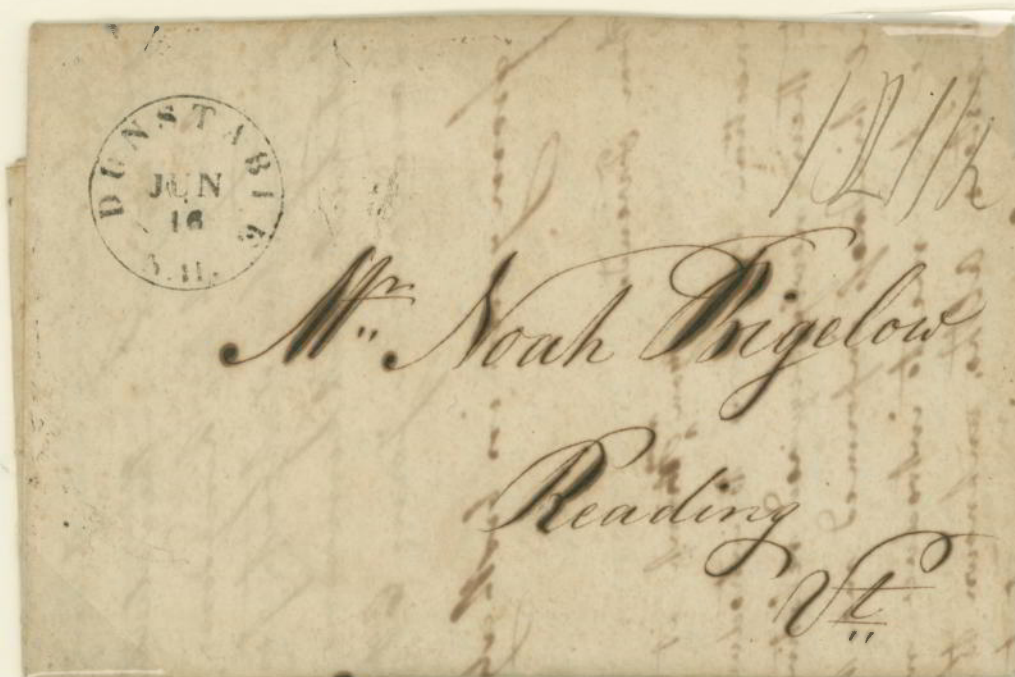 DUNSTABLE
JUN
16
N.H.
Mr Noah Bigelow
Reading
Vt